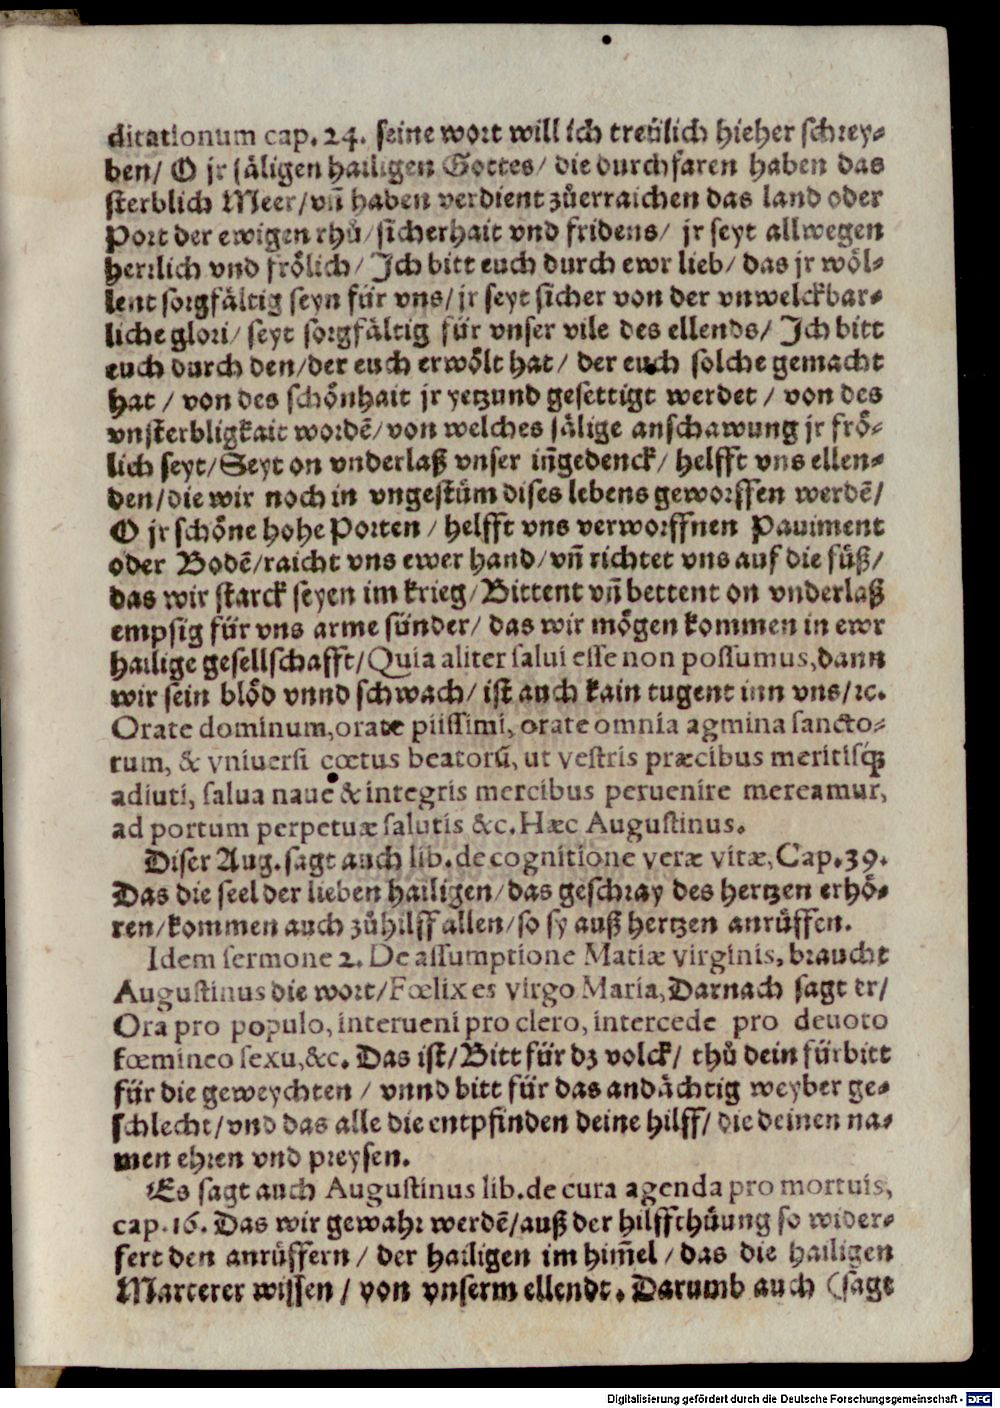 ditationum cap. 24. seine wort will ich treülich hieher schrey⸗
ben/ O jr säligen hailigen Gottes/ die durchfaren haben das
sterblich Meer/ vñ haben verdient zůerraichen das land oder
Port der ewigen rhů/ sicherhait vnd fridens/ jr seyt allwegen
herrlich vnd frölich/ Ich bitt euch durch ewr lieb/ das jr wöl⸗
lent sorgfältig seyn für vns/ jr seyt sicher von der vnwelckbar⸗
liche glori/ seyt sorgfältig für vnser vile des ellends/ Ich bitt
euch durch den/ der euch erwölt hat/ der euch solche gemacht
hat / von des schönhait jr yetzund gesettigt werdet / von des
vnsterbligkait wordẽ/ von welches sälige anschawung jr frö⸗
lich seyt/ Seyt on vnderlaß vnser iñgedenck/ helfft vns ellen⸗
den/ die wir noch in vngestüm dises lebens geworffen werdẽ/
O jr schöne hohe Porten / helfft vns verworffnen Paviment
oder Bodẽ/ raicht vns ewer hand/ vñ richtet vns auf die füß/
das wir starck seyen im krieg/ Bittent vñ bettent on vnderlaß
empsig für vns arme sünder/ das wir mögen kommen in ewr
hailige gesellschafft/ Quia aliter salui esse non possumus, dann
wir sein blöd vnnd schwach/ ist auch kain tugent inn vns/ ꝛc.
Orate dominum, orate piissimi, orate omnia agmina sancto-
rum, & vniuersi cœtus beatorũ, ut vestris præcibus meritisq́;
adiuti, salua naue & integris mercibus peruenire mereamur,
ad portum perpetuæ salutis &c. Hæc Augustinus.
Diser Aug. sagt auch lib. de cognitione veræ vitæ, Cap. 39.
Das die seel der lieben hailigen/ das geschray des hertzen erhö⸗
ren/ kommen auch zůhilff allen/ so sy auß hertzen anrüffen.
Idem sermone 2. De assumptione Mariæ virginis, braucht
Augustinus die wort/ Fœlix es virgo Maria, Darnach sagt er/
Ora pro populo, interueni pro clero, intercede pro deuoto
fœmineo sexu, &c. Das ist/ Bitt für dz volck/ thů dein fürbitt
für die geweychten / vnnd bitt für das andächtig weyber ge⸗
schlecht/ vnd das alle die entpfinden deine hilff/ die deinen na⸗
men ehren vnd preysen.
Es sagt auch Augustinus lib. de cura agenda pro mortuis,
cap. 16. Das wir gewahr werdẽ/ auß der hilffthüung so wider⸗
fert den anrüffern / der hailigen im him̃el / das die hailigen
Marterer wissen / von vnserm ellendt. Darumb auch (sagt
Digitalisierung gefördert durch die Deutsche Forschungsgemeinschaft - DFG